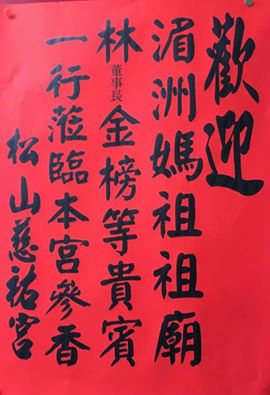 歡迎
湄洲媽祖祖廟
林董事長金榜等貴賓
一行蒞臨本宮參香
松山慈祐宮